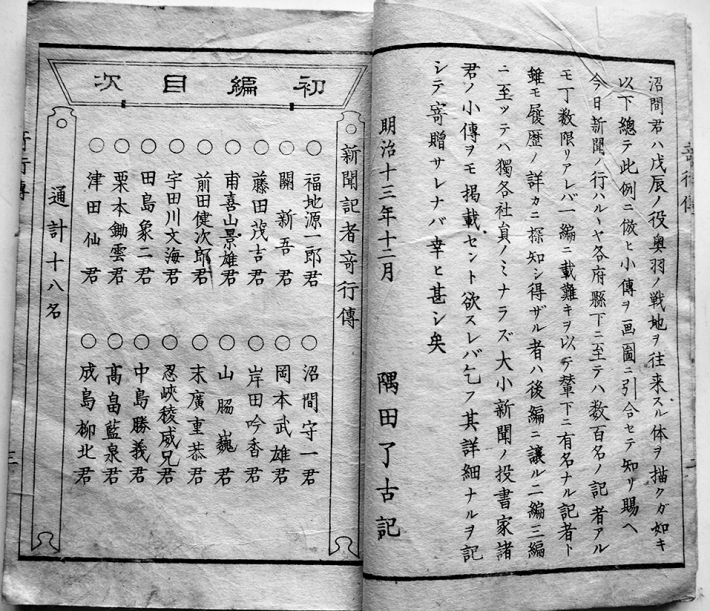 沼間君ハ戊辰ノ役奥羽ノ戦地ヲ往来スル体ヲ描クガ如キ
以下總テ此例ニ倣ヒ小傳ヲ画圖ニ引合セテ知リ賜ヘ
今日新聞ノ行ハルヽヤ各府縣下ニ至テハ数百名ノ記者アル
モ丁数限リアレバ一編ニ載難キヲ以テ輦下ニ有名ナル記者ト
雖モ履歴ノ詳カニ探知シ得ザル者ハ後編ニ讓ル二編三編
ニ至ッテハ獨各社貟ノミナラズ大小新聞ノ投書家諸
君ノ小傳ヲモ掲載セント欲スレバ乞フ其詳細ナルヲ記
シテ寄贈サレナバ幸ヒ甚シ矣
明治十三年十二月
隅田了古記
初編目次
新聞記者竒行傳
○福地源一郎君 ○沼間守一君
○關新吾君 ○岡本武雄君
○藤田茂吉君 ○岸田吟香君
○甫喜山景雄君 ○山脇巍君
○前田健次郎君 ○末廣重恭君
○宇田川文海君 ○忍峡稜威兄君
○田島象二君 ○中島勝義君
○栗本鋤雲君 ○高畠藍泉君
○津田仙君 ○成島柳北君
通計十八名